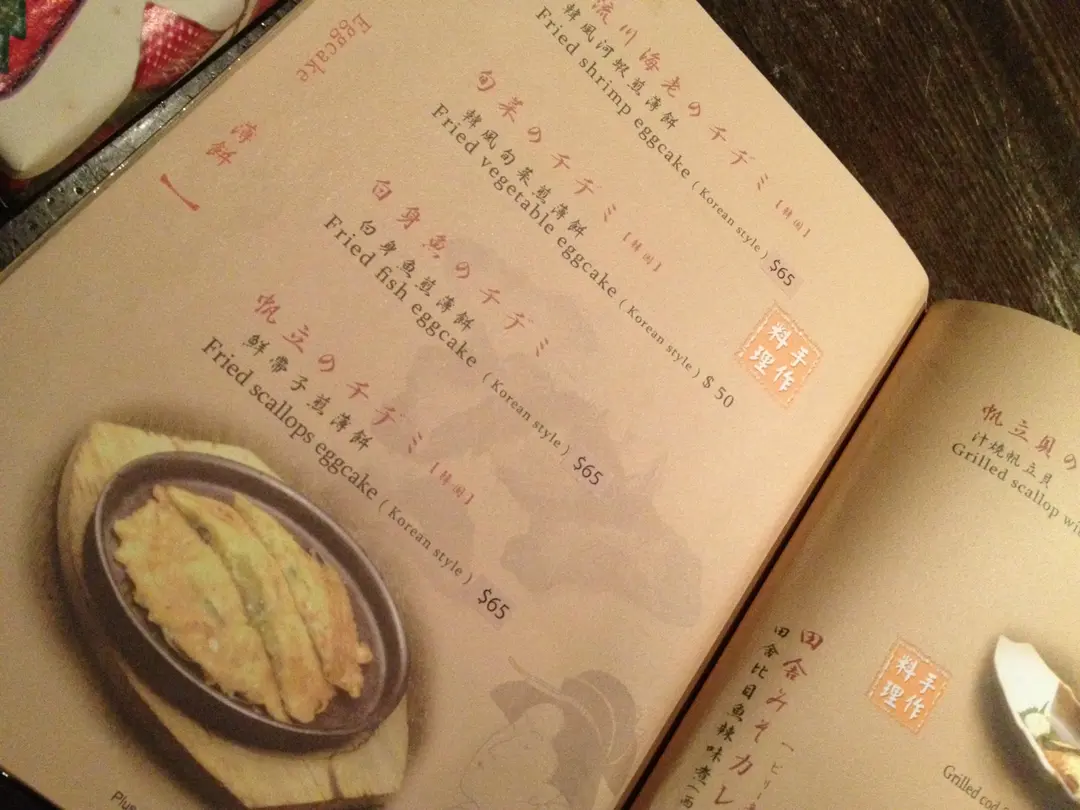 Eggcake
薄餅
流川海老のチヂミ【韓国】
韓風河蝦煎薄餅
Fried shrimp eggcake ( Korean style ) $65
旬菜のチヂミ【韓国】
韓風旬菜煎薄餅
Fried vegetable eggcake ( Korean style ) $ 50
白身魚のチヂミ
白身魚煎薄餅
Fried fish eggcake ( Korean style ) $65
帆立のチヂミ【韓国】
鮮帶子煎薄餅
Fried scallops eggcake ( Korean style ) $65
手作
料理
Plus
帆立貝の
汁燒帆立貝
Grilled scallop wi
手作
料理
田舎みそカレ
田舍比目魚辣味煮
Grilled cod